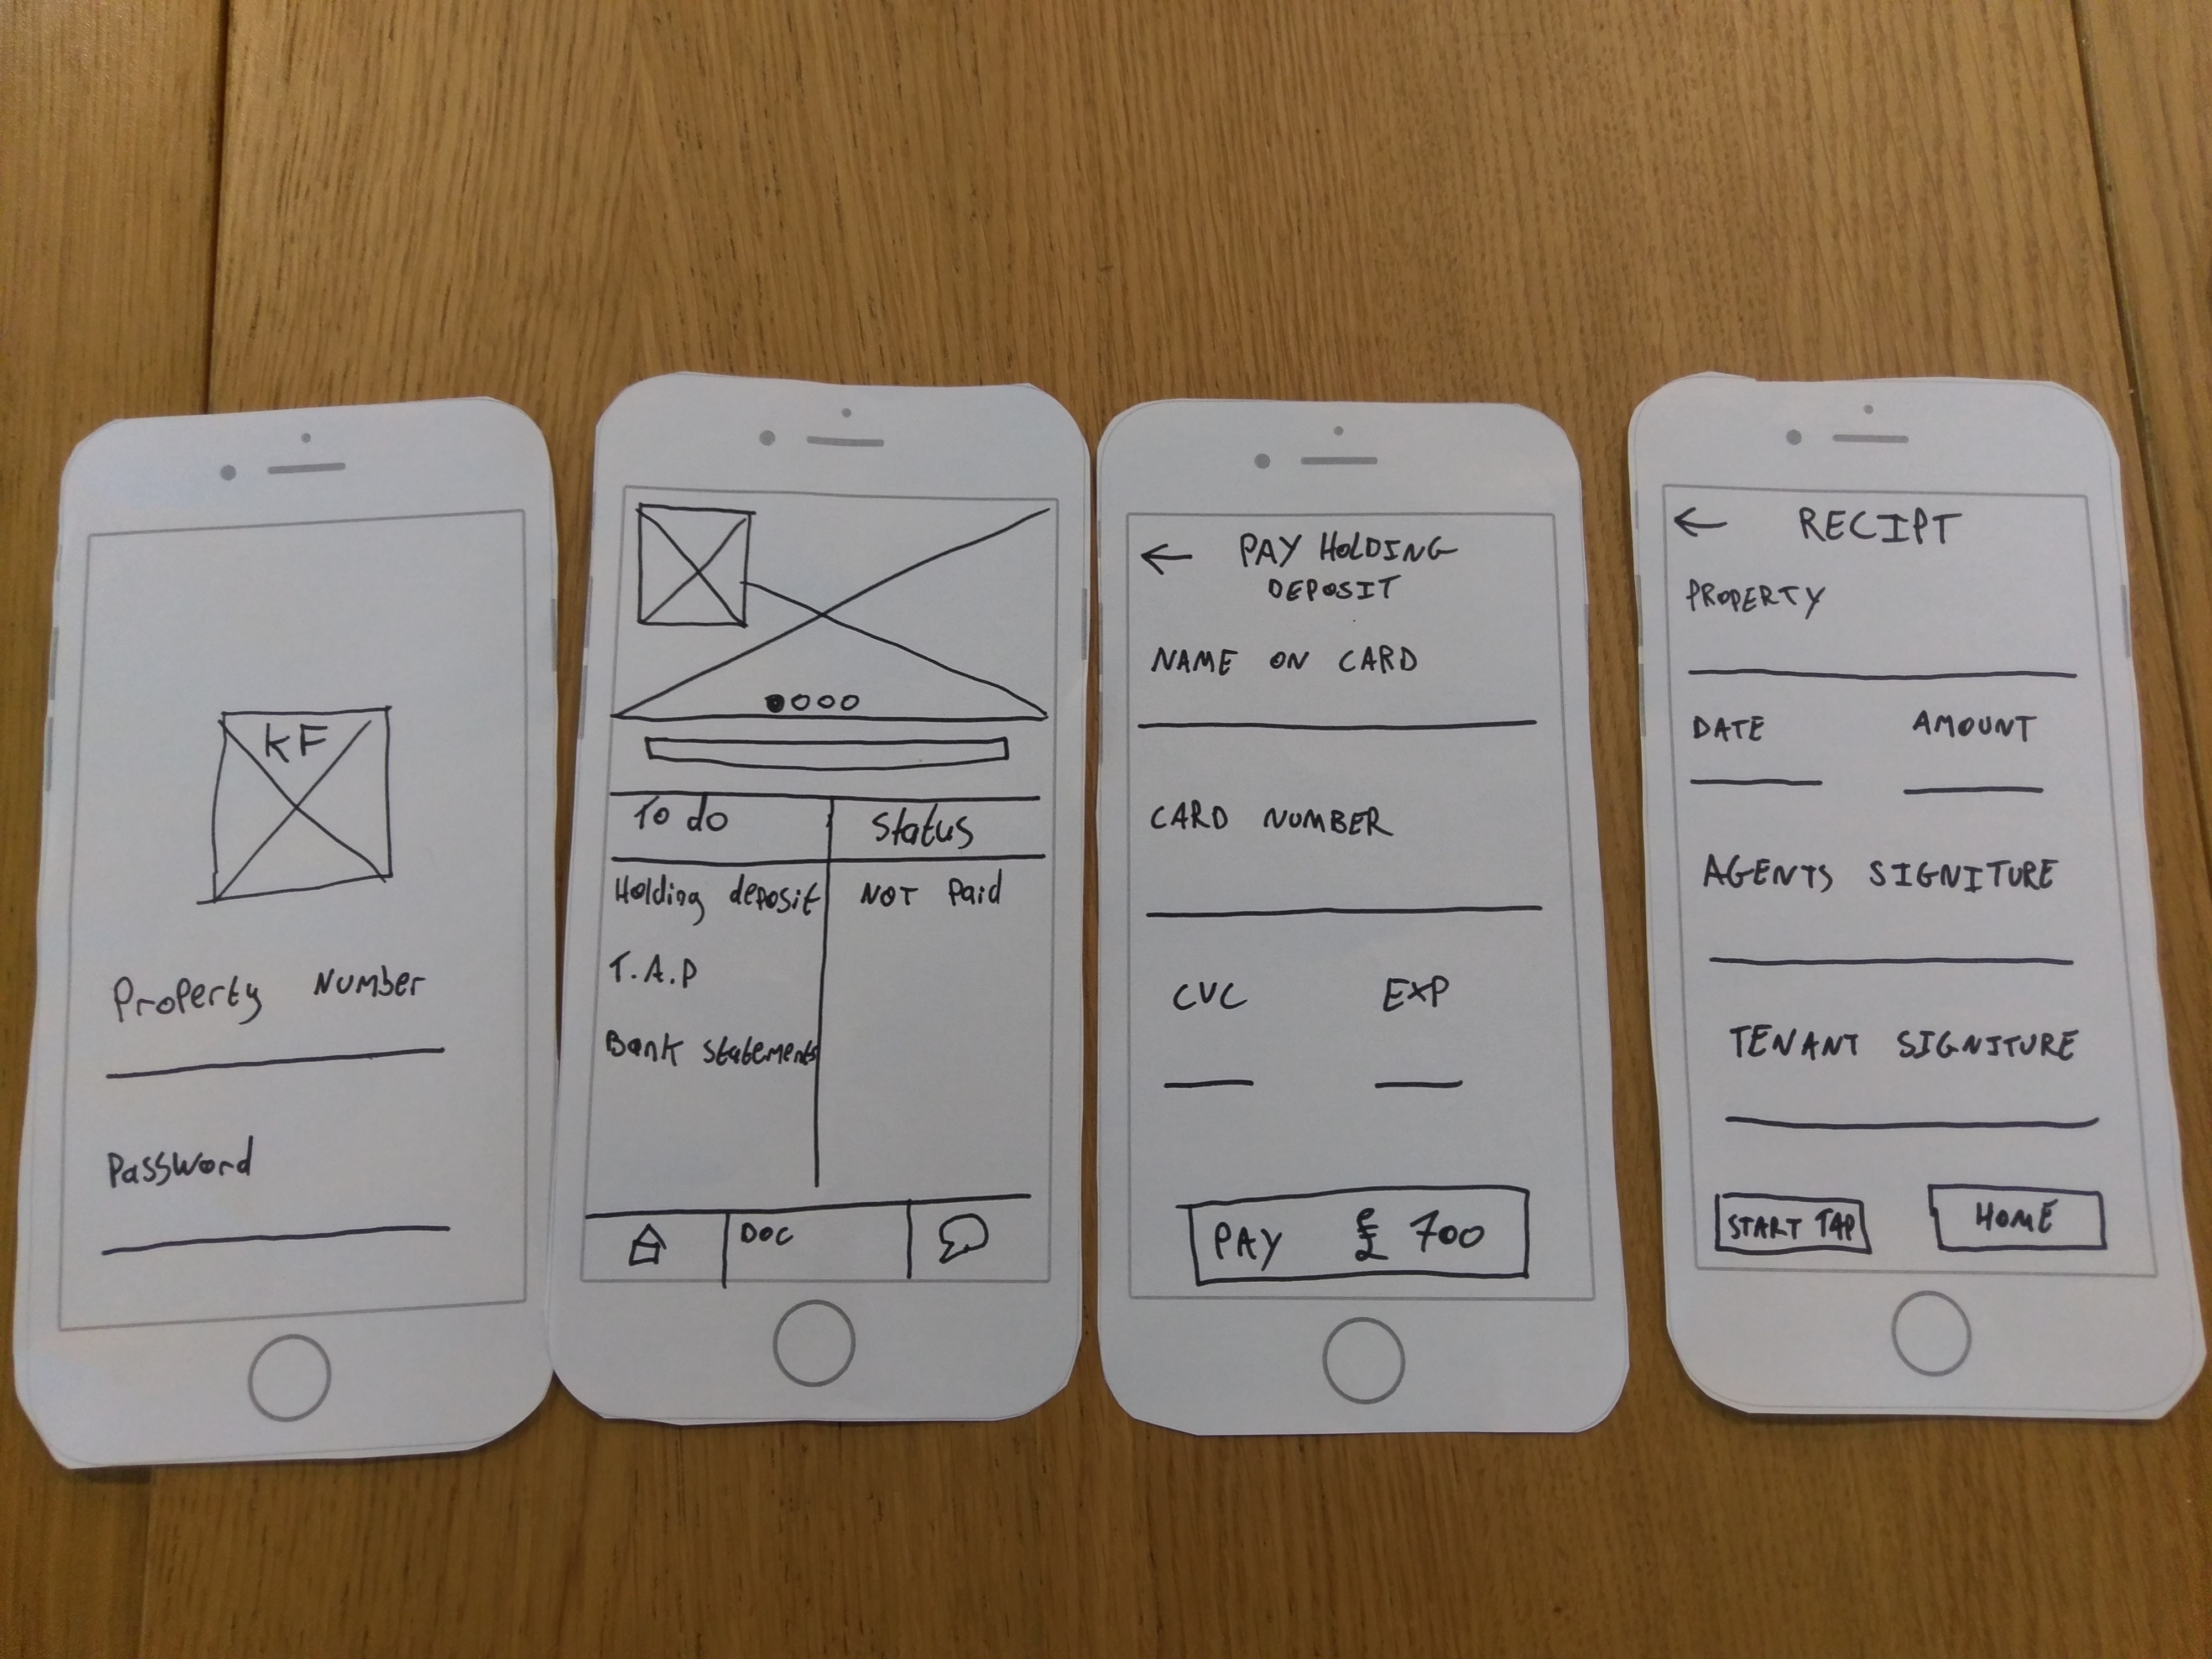 KF
Property Number
Password
To do Status
Holding deposit NOT Paid
T.A.P
Bank statements
DOC
PAY HOLDING
DEPOSIT
NAME ON CARD
CARD NUMBER
CVC EXP
PAY £ 700
RECIPT
PROPERTY
DATE AMOUNT
AGENTS SIGNITURE
TENANT SIGNITURE
START TAP HOME